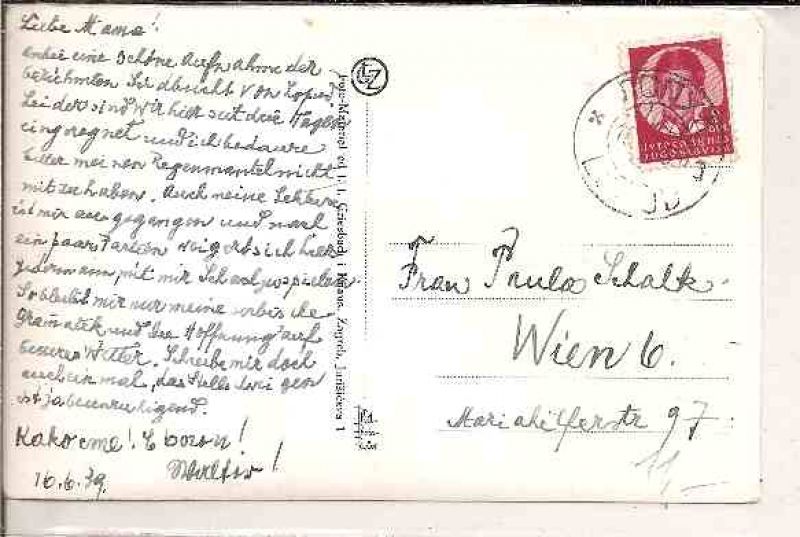 Liebe Mama!
anbei eine schöne Aufnahme der
berühmten Südbucht von Lopud
Leider sind wir hier seit drei Tagen
eingeregnet und ich bedaure
bitter meinen Regenmantel nicht
mitzuhaben. Auch meine Lektüre
ist mir ausgegangen und nach
ein paar Partien weigert sich hier
jedermann, mit mir Schach zu spielen.
So bleibt mir nur meine serbische
Gramatik und die Hoffnung auf
besseres Wetter. Schreibe mir doch
auch einmal, das Stillschweigen
ist ja beunruhigend.
Kako ste! S bogom!
Walter!
16.6.39.
Foto-Materijal et. F. I. Griesbach i Knaus, Zagreb, Jurišićeva 1
JUGOSLAVIJA
Frau Paula Schalk
Wien 6.
Mariahilferstr 97
11,—